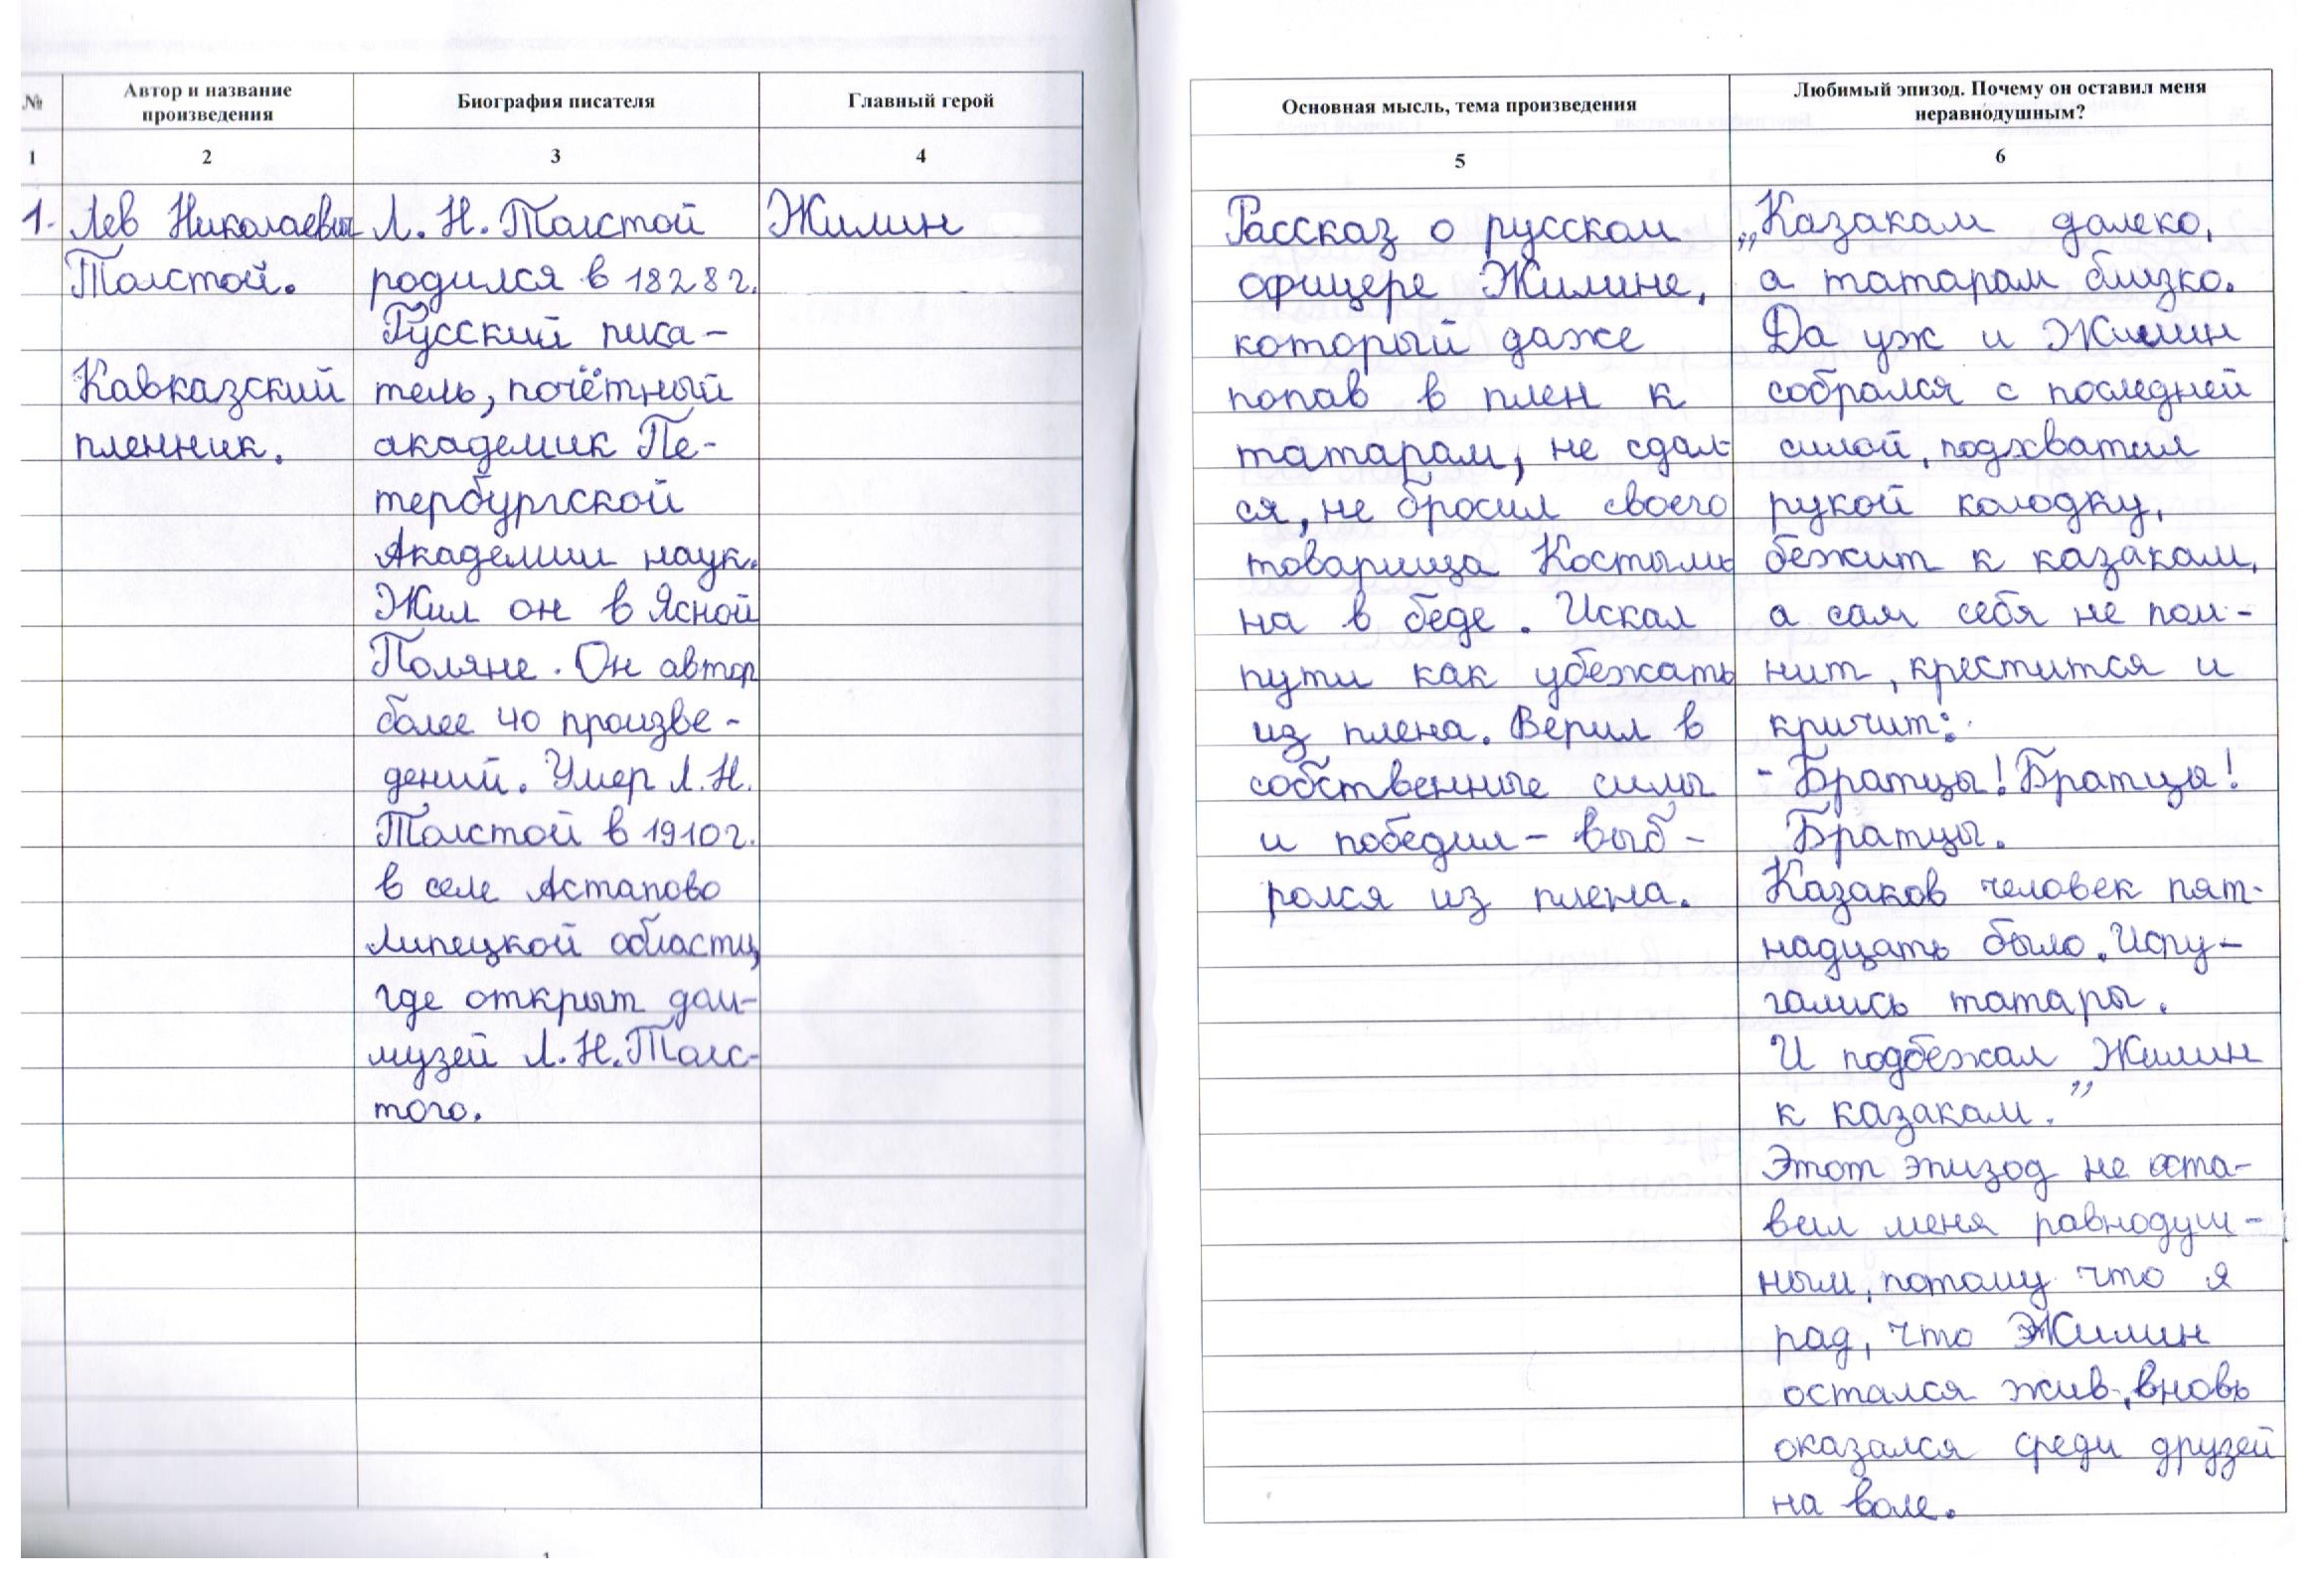 №
Автор и название
произведения
Биография писателя
Главный герой
1
2
3
4
1. Лев Николаевич
Толстой.
Кавказский
пленник.
Л. Н. Толстой
родился в 1828 г.
Русский писа-
тель, почётный
академик Пе-
тербургской
Академии наук.
Жил он в Ясной
Поляне. Он автор
более 40 произве-
дений. Умер Л. Н.
Толстой в 1910 г.
в селе Астапово
Липецкой области,
где открыт дом-
музей Л. Н. Толс-
того.
Жилин
Основная мысль, тема произведения
Любимый эпизод. Почему он оставил меня
неравнодушным?
5
6
Рассказ о русском
офицере Жилине,
который даже
попав в плен к
татарам, не сдал-
ся, не бросил своего
товарища Костыли
на в беде. Искал
пути как убежать
из плена. Верил в
собственные силы
и победил – выб-
рался из плена.
„Казакам далеко,
а татарам близко.
Да уж и Жилин
собрался с последней
силой, подхватил
рукой колодку,
бежит к казакам,
а сам себя не пом-
нит, крестится и
кричит:
- Братцы! Братцы!
Братцы.
Казаков человек пят-
надцать было. Испу-
гались татары.
И подбежал Жилин
к казакам.”
Этот эпизод не оста-
вил меня равнодуш-
ным, потому что я
рад, что Жилин
остался жив, вновь
оказался среди друзей
на воле.